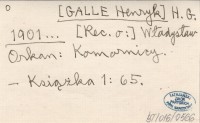 0
[GALLE Henryk] H. G.
1901... [Rec. o:] Władysław
Orkan: Komornicy.
- Książka 1: 65.